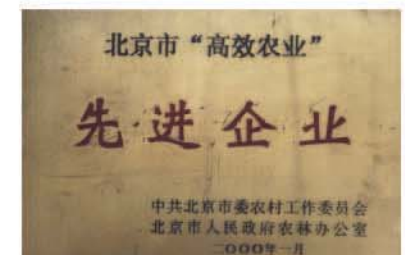 北京市“高效农业”
先进企业
中共北京市委农村工作委员会
北京市人民政府农林办公室
二〇〇〇年一月